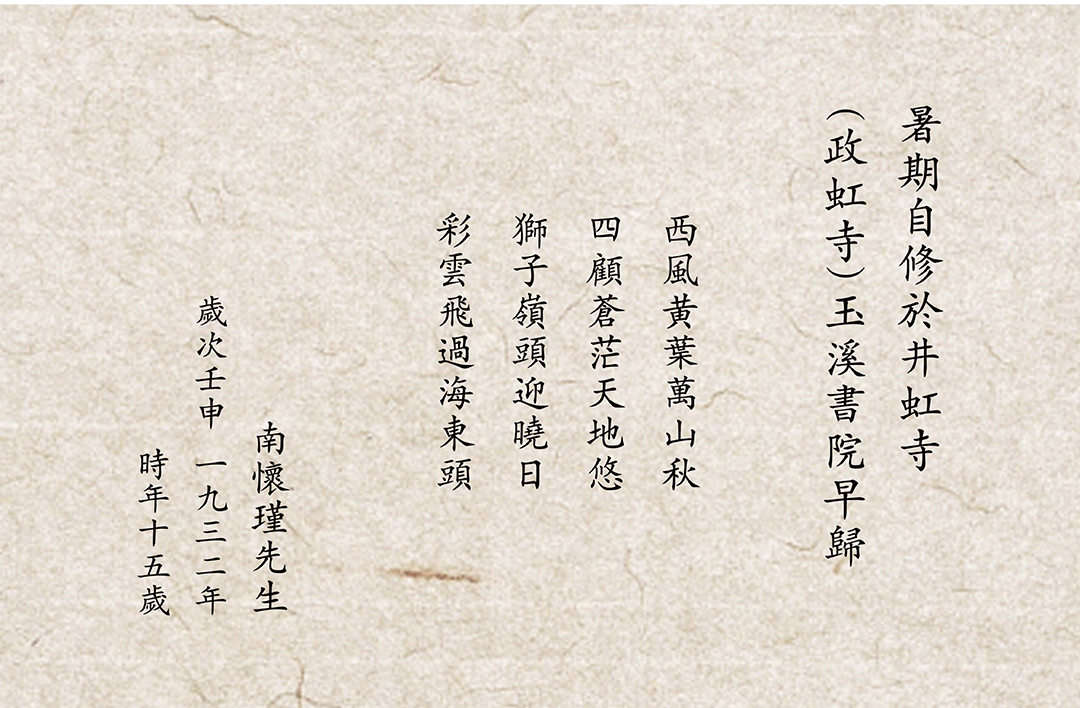 暑期自修於井虹寺
（政虹寺）玉溪書院早歸
西風黃葉萬山秋
四顧蒼茫天地悠
獅子嶺頭迎曉日
彩雲飛過海東頭
南懷瑾先生
歲次壬申 一九三二年
時年十五歲